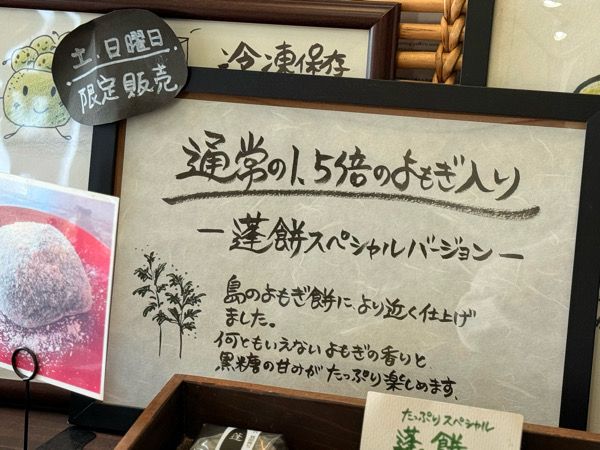 土、日曜日
限定販売
冷凍保存
通常の1.5倍のよもぎ入り
ー蓬餅スペシャルバージョンー
島のよもぎ餅に、より近く仕上げ
ました。
何ともいえないよもぎの香りと
黒糖の甘みがたっぷり楽しめます、
たっぷりスペシャル
蓬餅